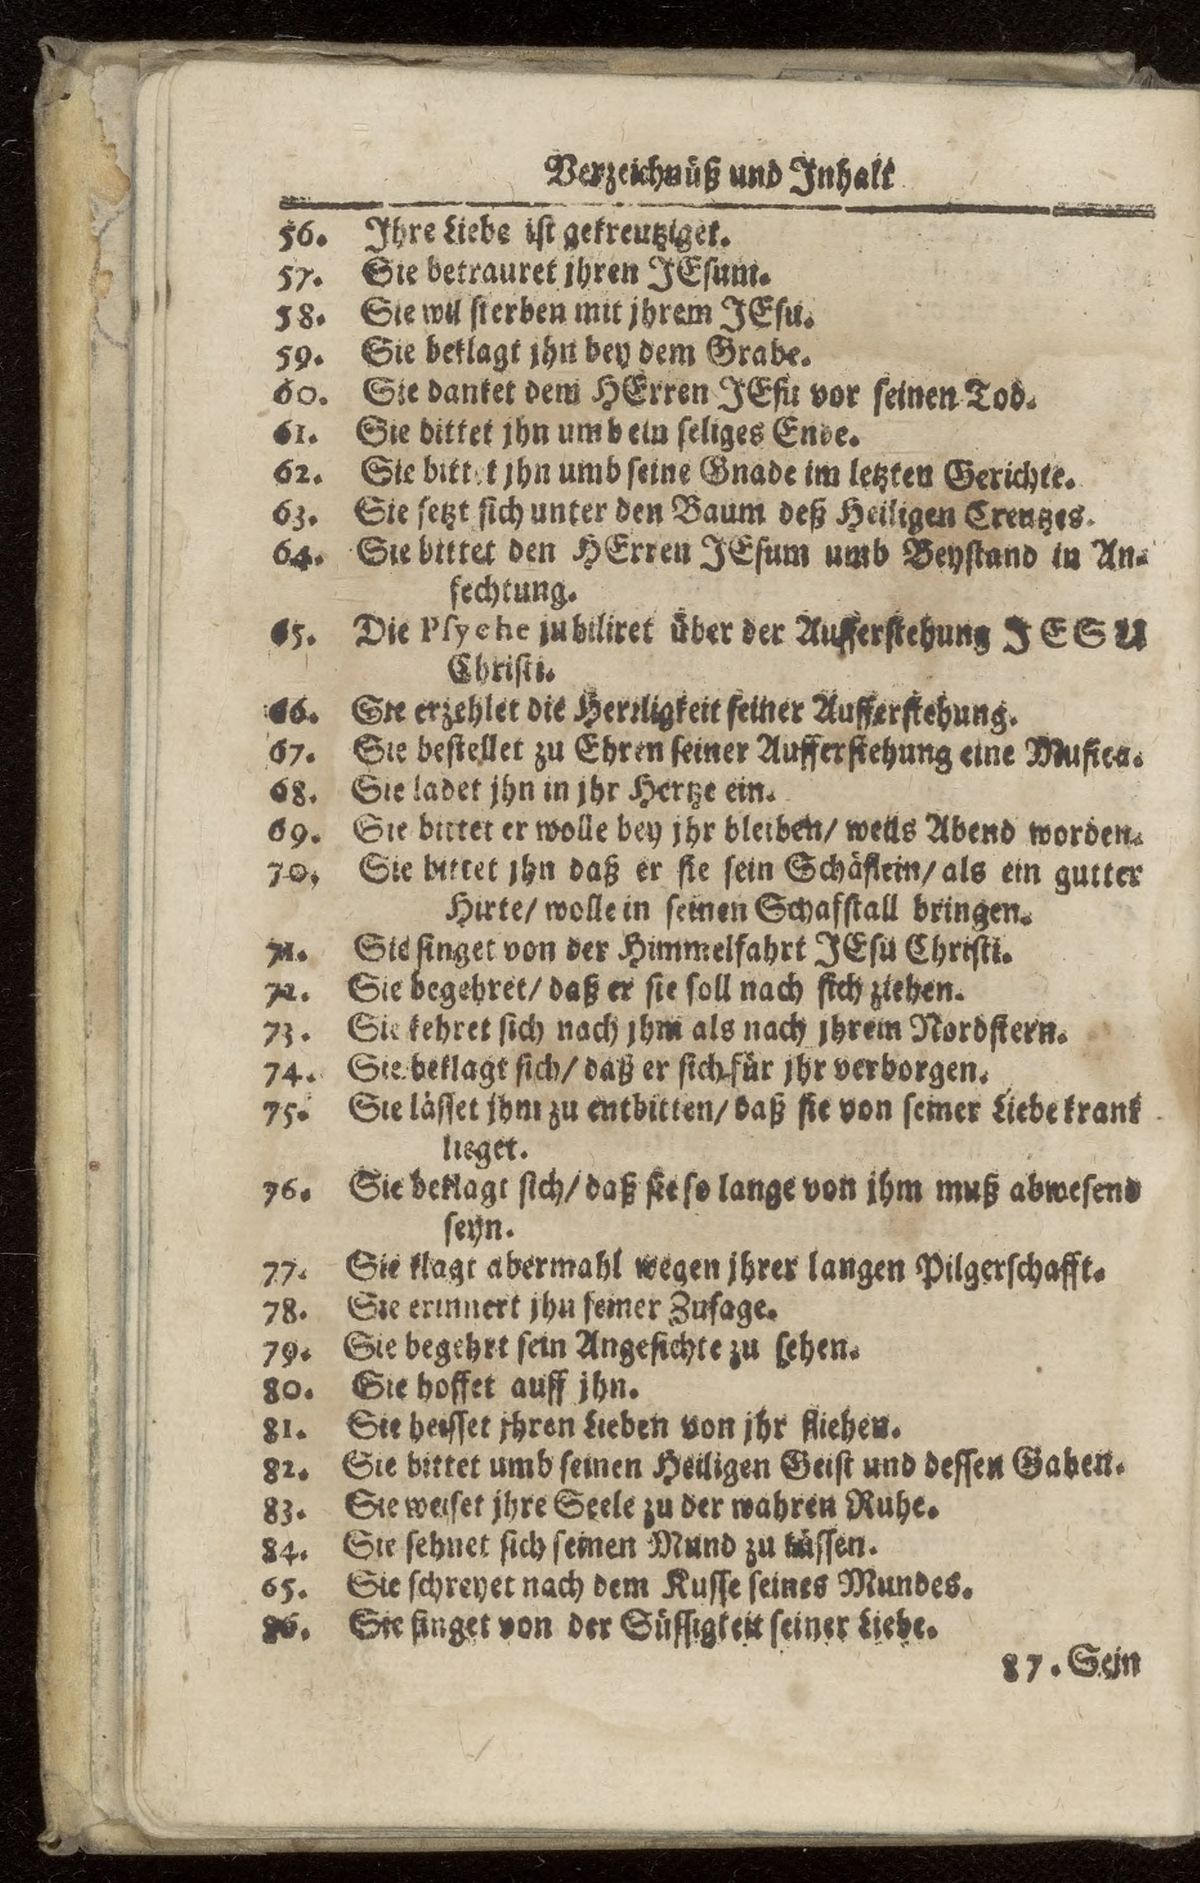 Verzeichnüß und Inhalt
56. Ihre Liebe ist gekreutziget.
57. Sie betrauret jhren JEsum.
58. Sie wil sterben mit jhrem JEsu.
59. Sie beklagt jhn bey dem Grabe.
60. Sie danket dem HErren JEsu vor seinen Tod.
61. Sie bittet jhn umb ein seliges Ende.
62. Sie bittet jhn umb seine Gnade im letzten Gerichte.
63. Sie setzt sich unter den Baum deß Heiligen Creutzes.
64. Sie bittet den HErren JEsum umb Beystand in An-
fechtung.
65. Die Psyche jubiliret über der Aufferstehung JESU
Christi.
66. Sie erzehlet die Herrligkeit seiner Aufferstehung.
67. Sie bestellet zu Ehren seiner Aufferstehung eine Musica.
68. Sie ladet jhn in jhr Hertze ein.
69. Sie bittet er wolle bey jhr bleiben/ weils Abend worden.
70. Sie bittet jhn daß er sie sein Schäflein/ als ein gutter
Hirte/ wolle in seinen Schafstall bringen.
71. Sie singet von der Himmelfahrt JEsu Christi.
72. Sie begehret/ daß er sie soll nach sich ziehen.
73. Sie kehret sich nach jhm als nach jhrem Nordstern.
74. Sie beklagt sich/ daß er sich für jhr verborgen.
75. Sie lässet jhm zu entbitten/ daß sie von seiner Liebe krank
lieget.
76. Sie beklagt sich/ daß sie so lange von jhm muß abwesend
seyn.
77. Sie klagt abermahl wegen jhrer langen Pilgerschafft.
78. Sie erinnert jhn seiner Zusage.
79. Sie begehrt sein Angesichte zu sehen.
80. Sie hoffet auff jhn.
81. Sie heisset jhren Lieben von jhr fliehen.
82. Sie bittet umb seinen Heiligen Geist und dessen Gaben.
83. Sie weiset jhre Seele zu der wahren Ruhe.
84. Sie sehnet sich seinen Mund zu küssen.
65. Sie schreyet nach dem Kusse seines Mundes.
86. Sie singet von der Süssigkeit seiner Liebe.
87. Sein